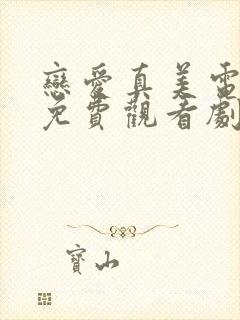 戀愛真美電
免費觀看劇
寶山